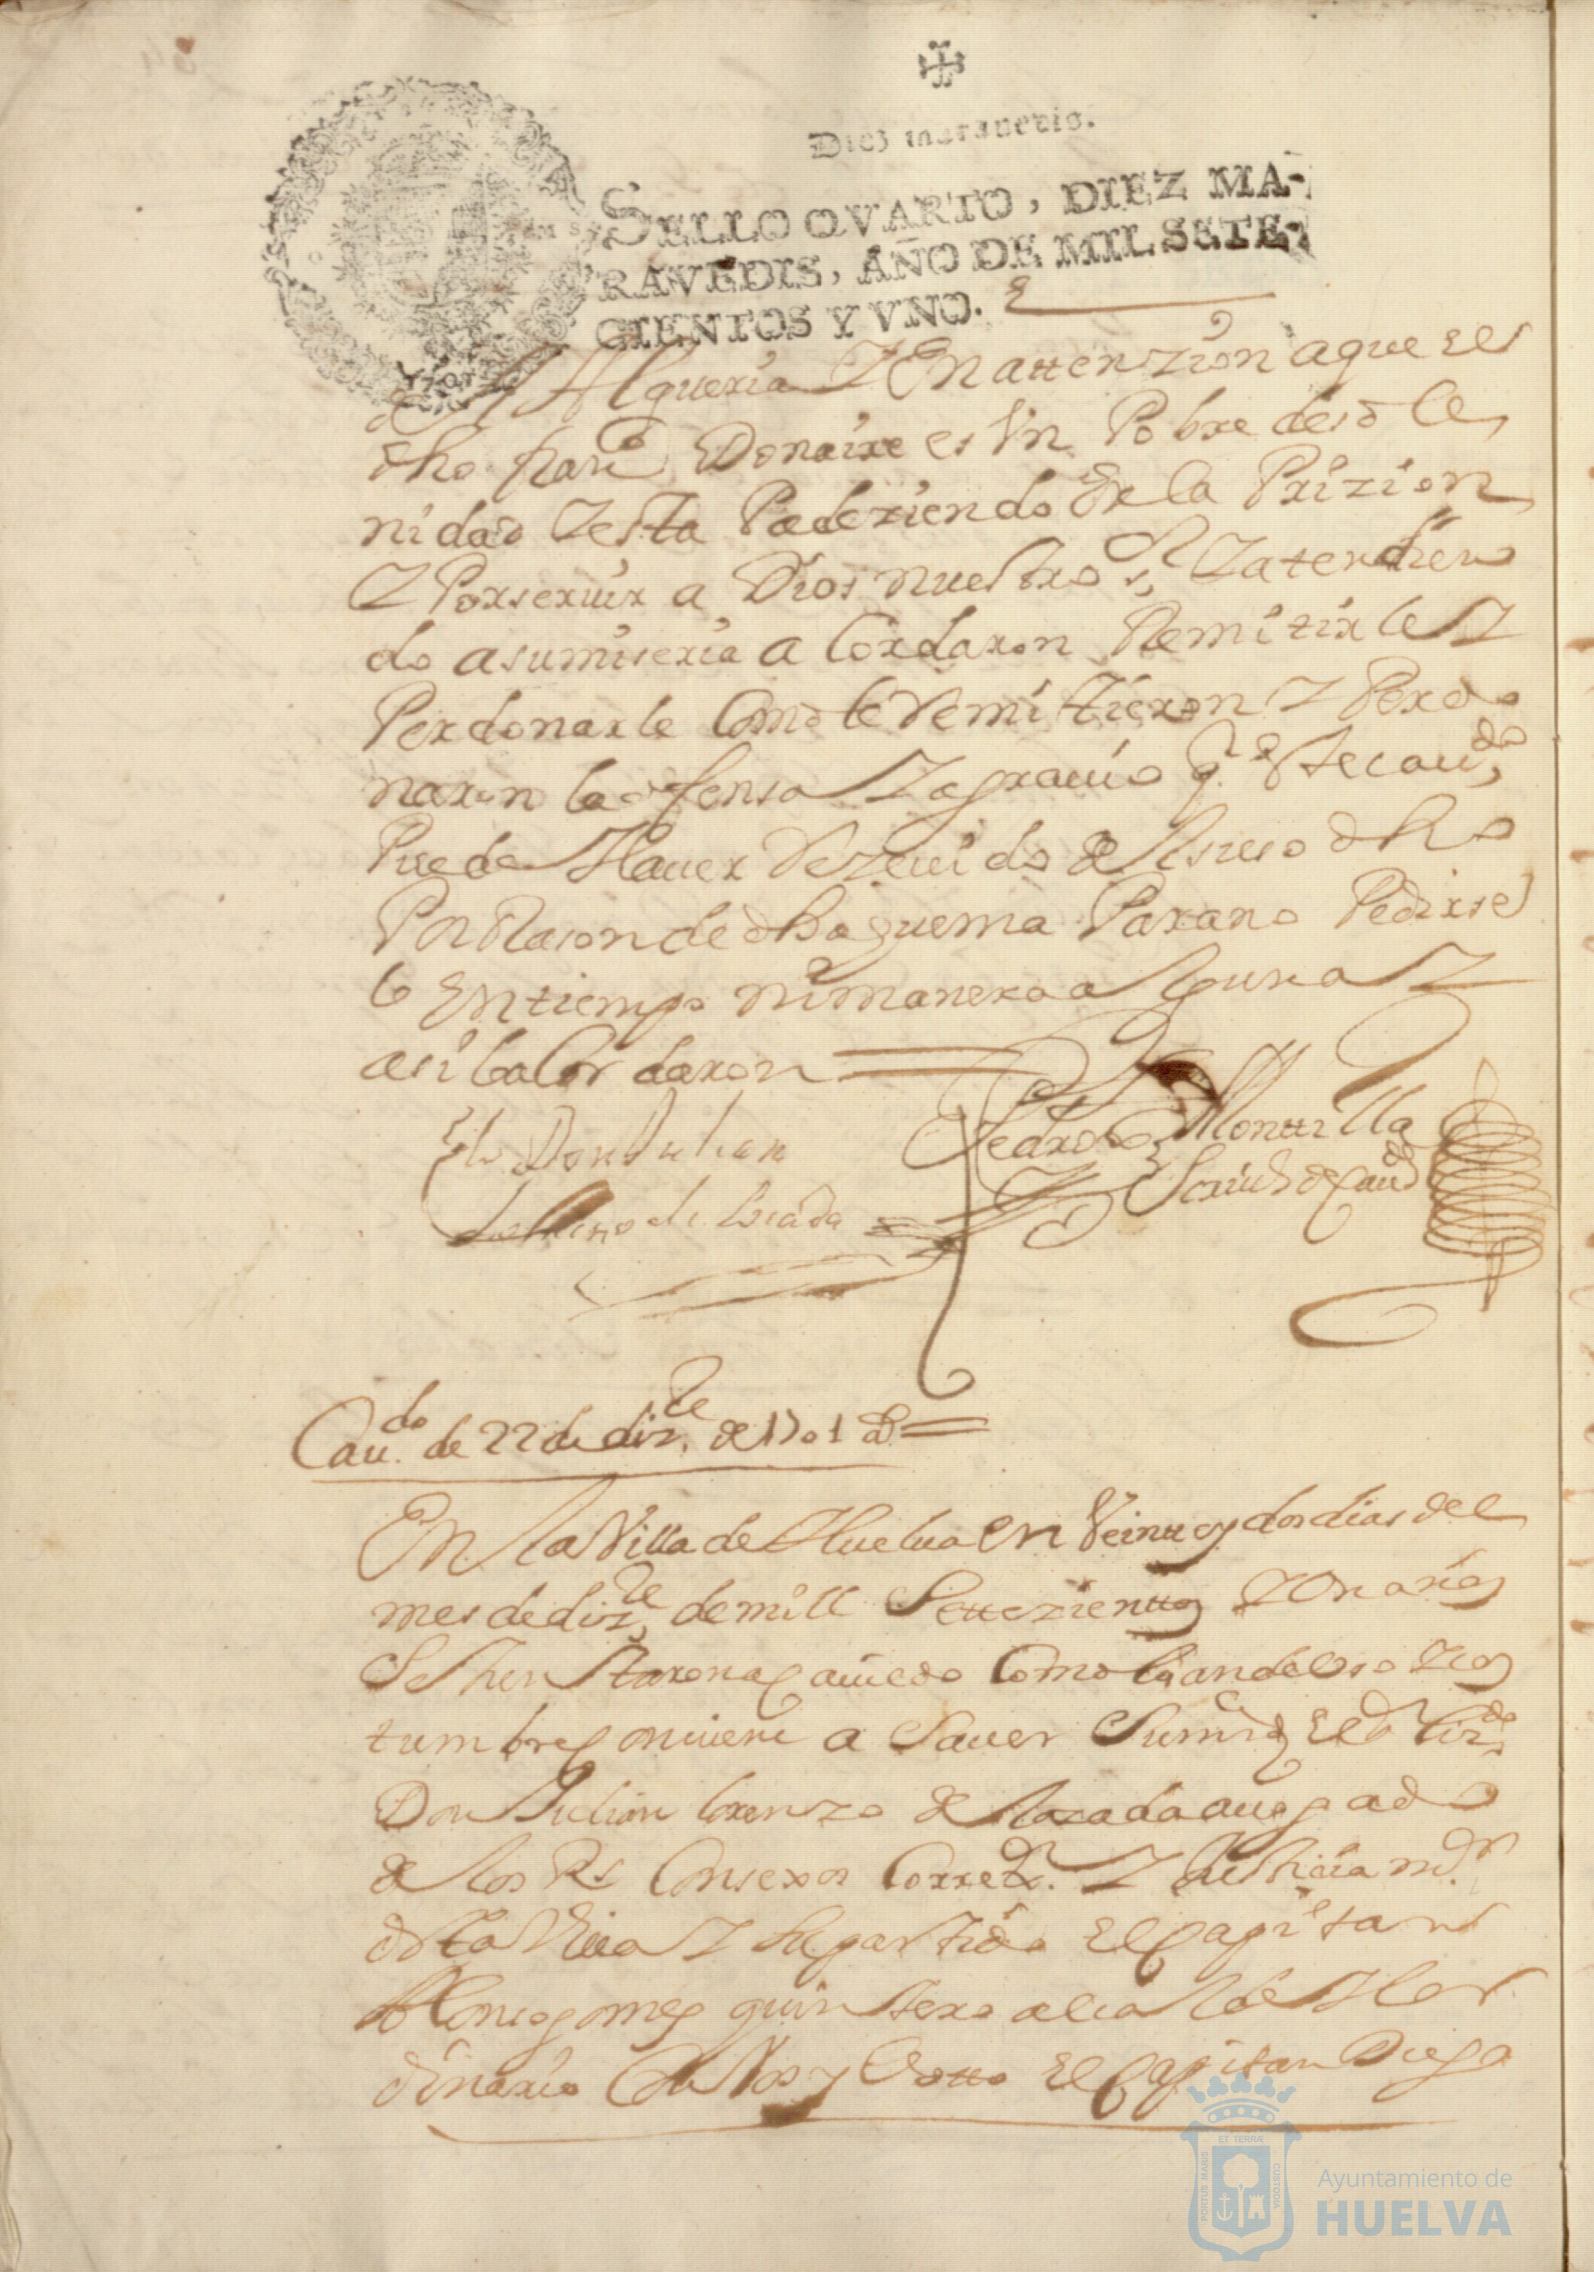 Diez maravedis.
SELLO QVARTO, DIEZ MA-
RAVEDIS, AÑO DE MIL SETE-
CIENTOS Y VNO.
Alqueria Y En attenzion a que el
dho fran.co Donaire es Vn Pobre de so le
nidad Y esta Padeziendo En la Prizion
Y Por seruir a Dios nuestro s.r Y atendien
do a su miseria a Cordaron Remitirle Y
Perdonarle Como le Remitieron Y Perdo
naron la ofensa Y agrauio q.e Este cau.do
Pueda Hauer Rezeuido del suso dho
Por Rason de dha quema Para no Pedirse
lo En tiempo ni manera alguna Y
asi lo a Cordaron
L.do Don Julian
Lorenzo de Lozada
Pedro de Montilla
Scriu.o de Cau.do
Cau.do de 22 de diz.re de 1701 a.s
En la Villa de Huelua en Veintte y dos dias del
mes de diz.re de mill Settezienttos Y Vn años
Se Juntaron a Cauildo Como lo an de Vso Y cos
tumbre conuiene a Sauer Sus m.rds El S.r Liz.do
Don Julian lorenzo de lozada auogado
de los R.s Consexos Correx.or Y Justicia m.or
de sta Villa Y Su partido El Capitan
Alonso gomez quintero alcalde Hor
dinario Con Vos y Votto El Capitan Diego
Ayuntamiento de
HUELVA
PORTUS MARIS
ET TERRÆ
CUSTODIA